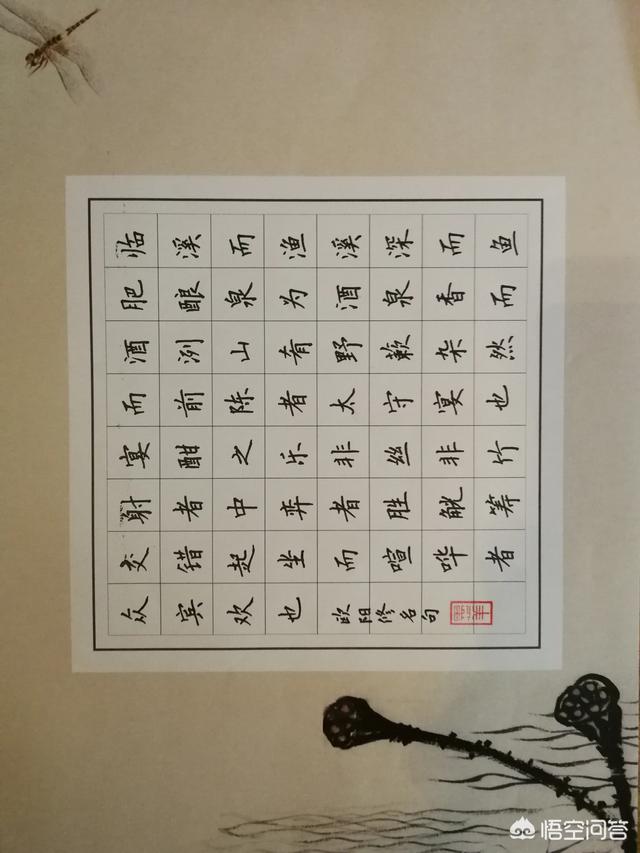 临溪而渔溪深而鱼
肥酿泉为酒泉香而
酒洌山肴野蔌杂然
而前陈者太守宴也
宴酣之乐非丝非竹
射者中弈者胜觥筹
交错起坐而喧哗者
众宾欢也
欧阳修名句
悟空问答